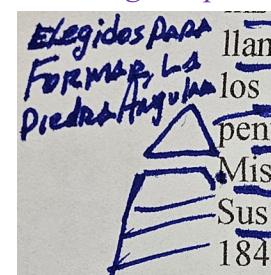 Elegidos PARA
FORMAR, LA
Piedra Angular
llan
los
pen
Mis
Sus
184